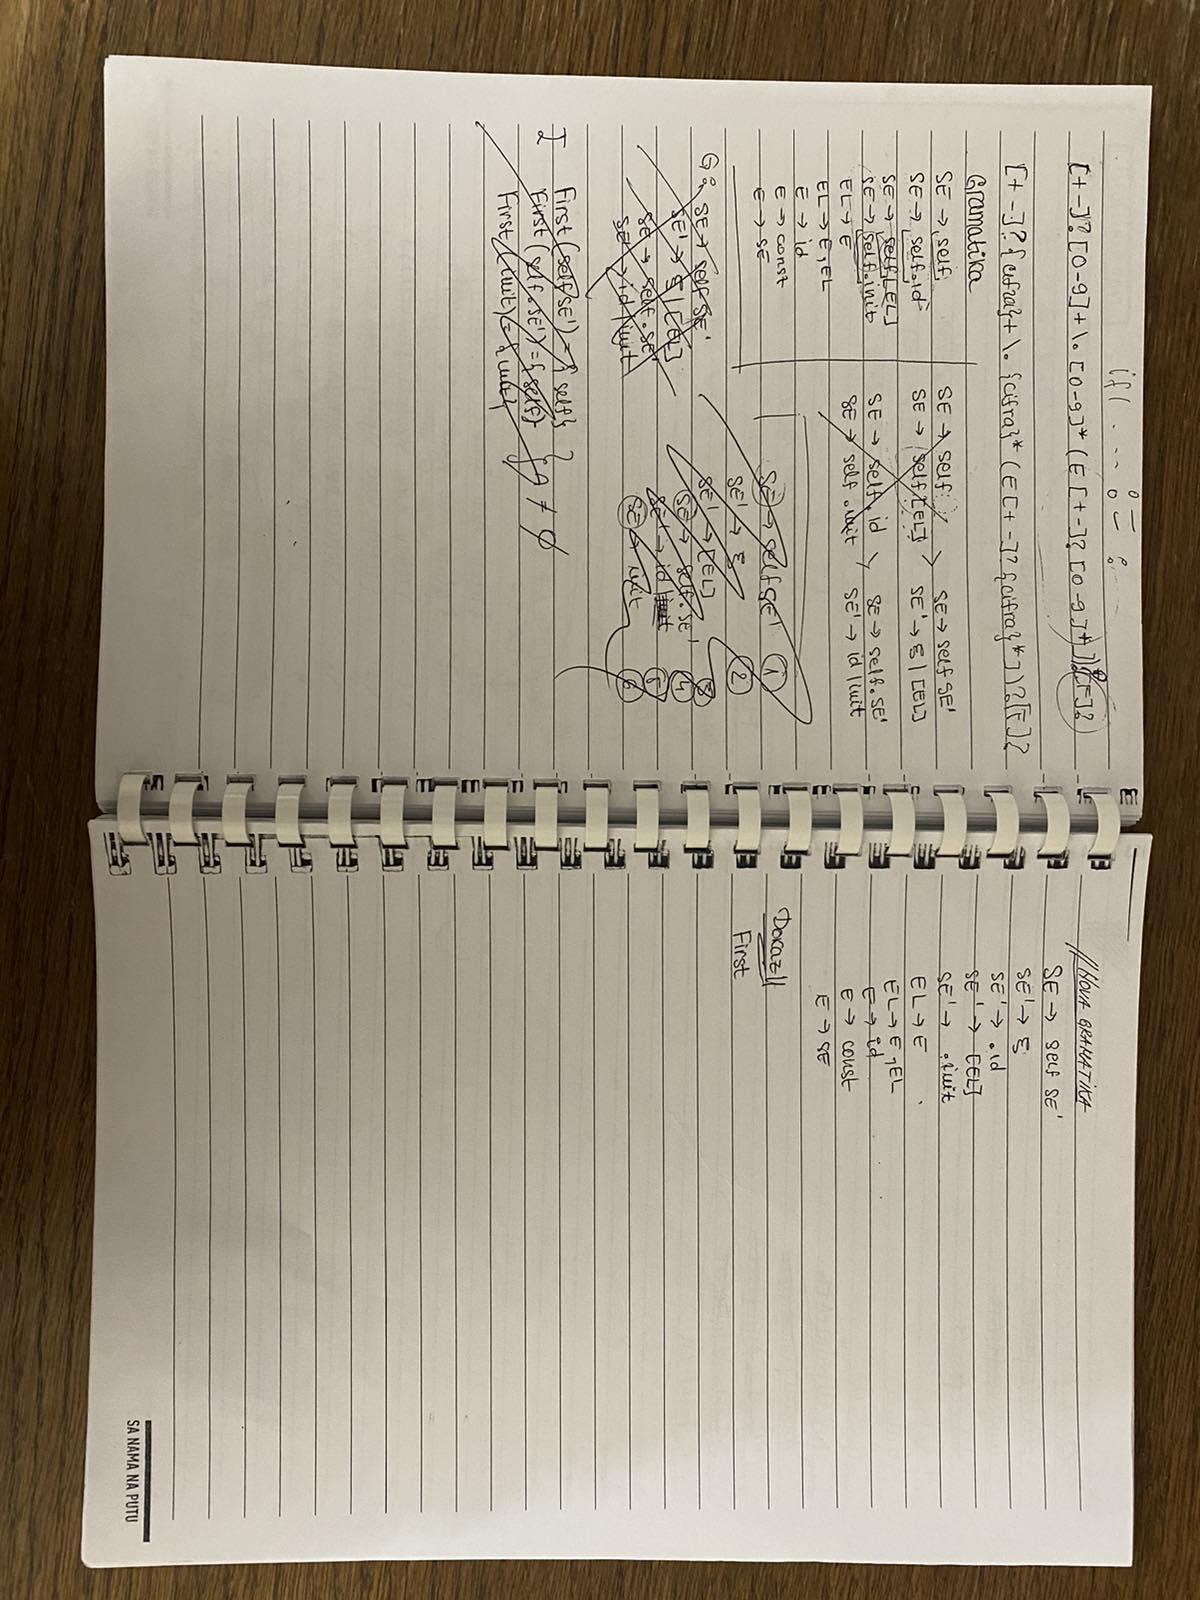 if( ... := :
[+-]?[0-9]+\.[0-9]*(E[+-]?[0-9]*])?[F]?
[+-]?{cifra}+\.{cifra}*(E[+-]?{cifra}*])?[F]?
Gramatika
SE → self
SE → self.id
SE → self[EL]
SE → self.init
EL → E
EL → E, EL
E → id
E → const
E → SE
SE → self
SE → self[EL]
SE → self.id
SE → self.init
SE → self SE'
SE' → ε | [EL]
SE → self.SE'
SE' → id | init
G: SE → self SE'
SE' → ε | [EL]
SE → self.SE'
SE' → id | init
SE → self SE' ①
SE' → ε ②
SE' → [EL] ③
SE → self.SE' ④
SE' → id ⑤
SE → init ⑥
I First(self SE') = {self}
First(self.SE') = {self}
First(init) = {init}
∩ ≠ ∅
// NOVA GRAMATIKA
SE → self SE'
SE' → ε
SE' → .id
SE' → [EL]
SE' → .init
EL → E
EL → E, EL
E → id
E → const
E → SE
Dokaz //
First
SA NAMA NA PUTU